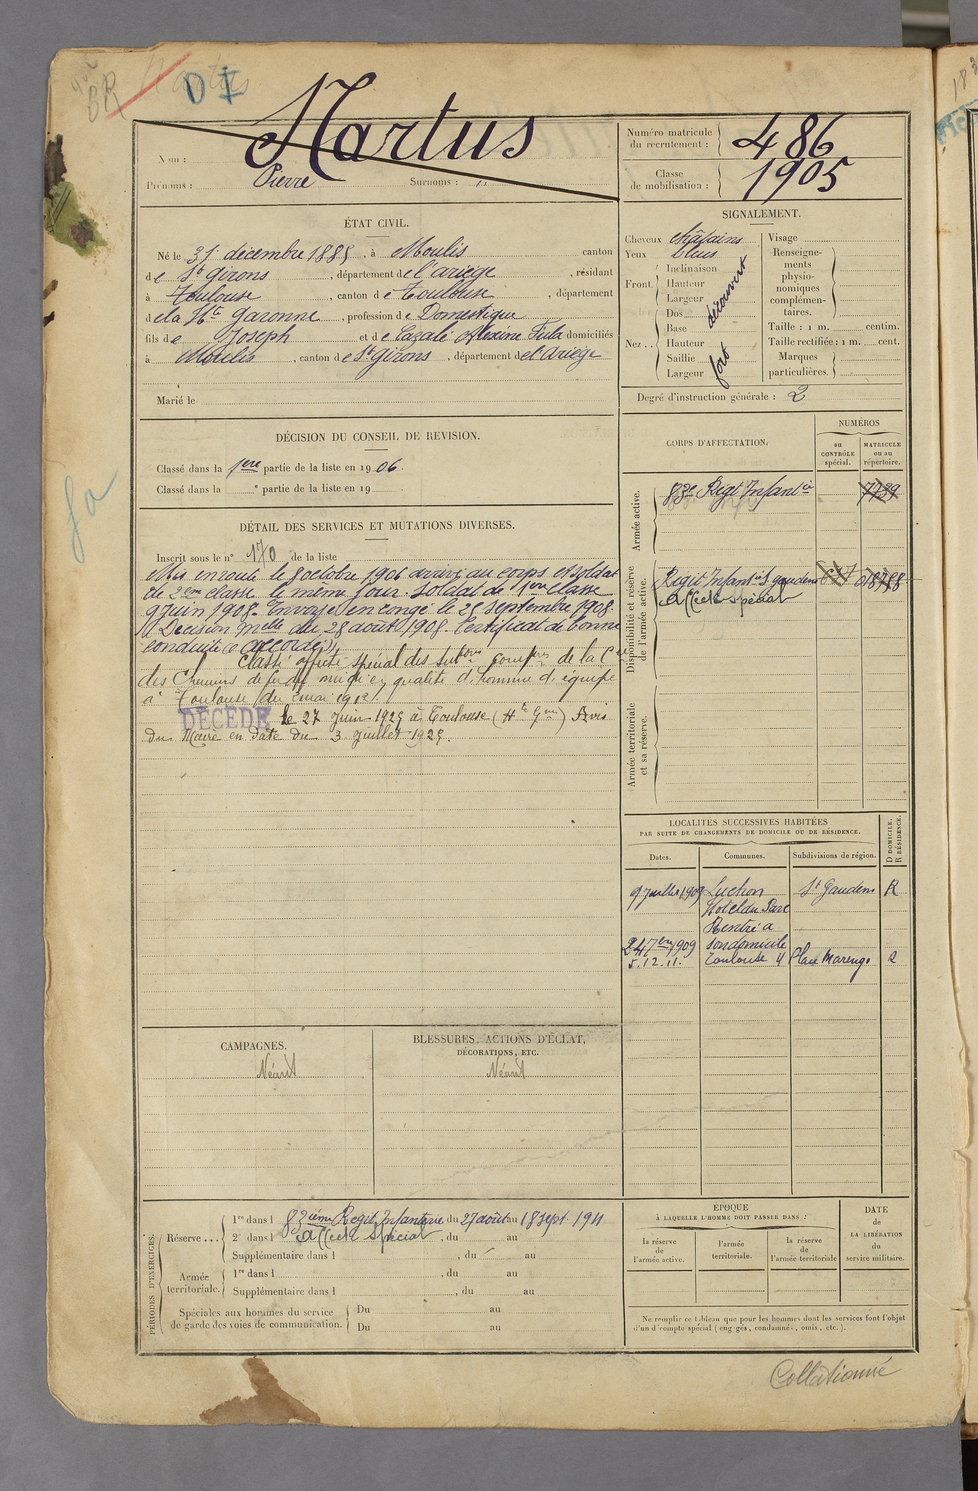 BR
DI
Martus
Nom :
Prénoms : Pierre Surnoms : "
Numéro matricule du recrutement : 486
Classe de mobilisation : 1905
ÉTAT CIVIL.
Né le 31 décembre 1885, à Moulis canton
de St Girons, département de l'ariège, résidant
à Toulouse, canton de Toulouse, département
de la Hte Garonne, profession de Domestique
fils de Joseph et de Cazalé Alexine Tula domiciliés
à Moulis, canton de St girons, département de l'Ariège
Marié le
SIGNALEMENT.
Cheveux châtains
Yeux bleus
Front. Inclinaison
Hauteur
Largeur
découvert
Nez . . Dos
Base
Hauteur
Saillie
Largeur
fort
Visage
Renseigne-
ments
physio-
nomiques
complémen-
taires.
Taille : 1 m. centim.
Taille rectifiée : 1 m. cent.
Marques
particulières.
Degré d'instruction générale : 2
DÉCISION DU CONSEIL DE REVISION.
Classé dans la 1ere partie de la liste en 1906.
Classé dans la e partie de la liste en 19
DÉTAIL DES SERVICES ET MUTATIONS DIVERSES.
Inscrit sous le n° 170 de la liste
Mis en route le 8 octobre 1906 arrivé au corps et soldat
de 2eme classe le même jour. Soldat de 1ere classe
9 juin 1908. Envoyé en congé le 25 septembre 1908.
(Décision melle du 28 août 1908. Certificat de bonne
conduite "accordé".
Classé affecté spécial des subons complres de la Cie
des Chemins de fer du midi en qualité d'homme d'équipe
à Toulouse du 2 mai 1912.
DÉCÉDÉ le 27 Juin 1925 à Toulouse (Hte Gne) Avis
du Maire en date du 3 Juillet 1925.
CORPS D'AFFECTATION.
NUMÉROS
au CONTRÔLE spécial.
MATRICULE ou au répertoire.
Armée active.
83e Regt Infantie 7739
Disponibilité et réserve de l'armée active.
Regit Infantie St gaudens 018788
affecté spécial
Armée territoriale et sa réserve.
LOCALITÉS SUCCESSIVES HABITÉES
PAR SUITE DE CHANGEMENTS DE DOMICILE OU DE RÉSIDENCE.
Dates. Communes. Subdivisions de région. D DOMICILE. R RÉSIDENCE.
9 Juillet 1909 Luchon St Gaudens R
Hotel du Parc
Rentré a
24 7bre 1909 son domicile
5.12.11. Toulouse 4 Place Marengo R
CAMPAGNES.
Néant
BLESSURES, ACTIONS D'ÉCLAT,
DÉCORATIONS, ETC.
Néant
PÉRIODES D'EXERCICES.
Réserve . . . 1re dans l 83ième Regit Infanterie du 27 août au 18 sept 1911
2e dans l affecté spécial, du au
Supplémentaire dans l , du au
Armée territoriale. 1re dans l , du au
Supplémentaire dans l , du au
Spéciales aux hommes du service Du au
de garde des voies de communication. Du au
ÉPOQUE
À LAQUELLE L'HOMME DOIT PASSER DANS :
la réserve de l'armée active.
l'armée territoriale.
la réserve de l'armée territoriale
DATE
de
LA LIBÉRATION
du
service militaire.
Ne remplir ce tableau que pour les hommes dont les services font l'objet
d'un décompte spécial (engagés, condamnés, omis, etc.).
Collationné